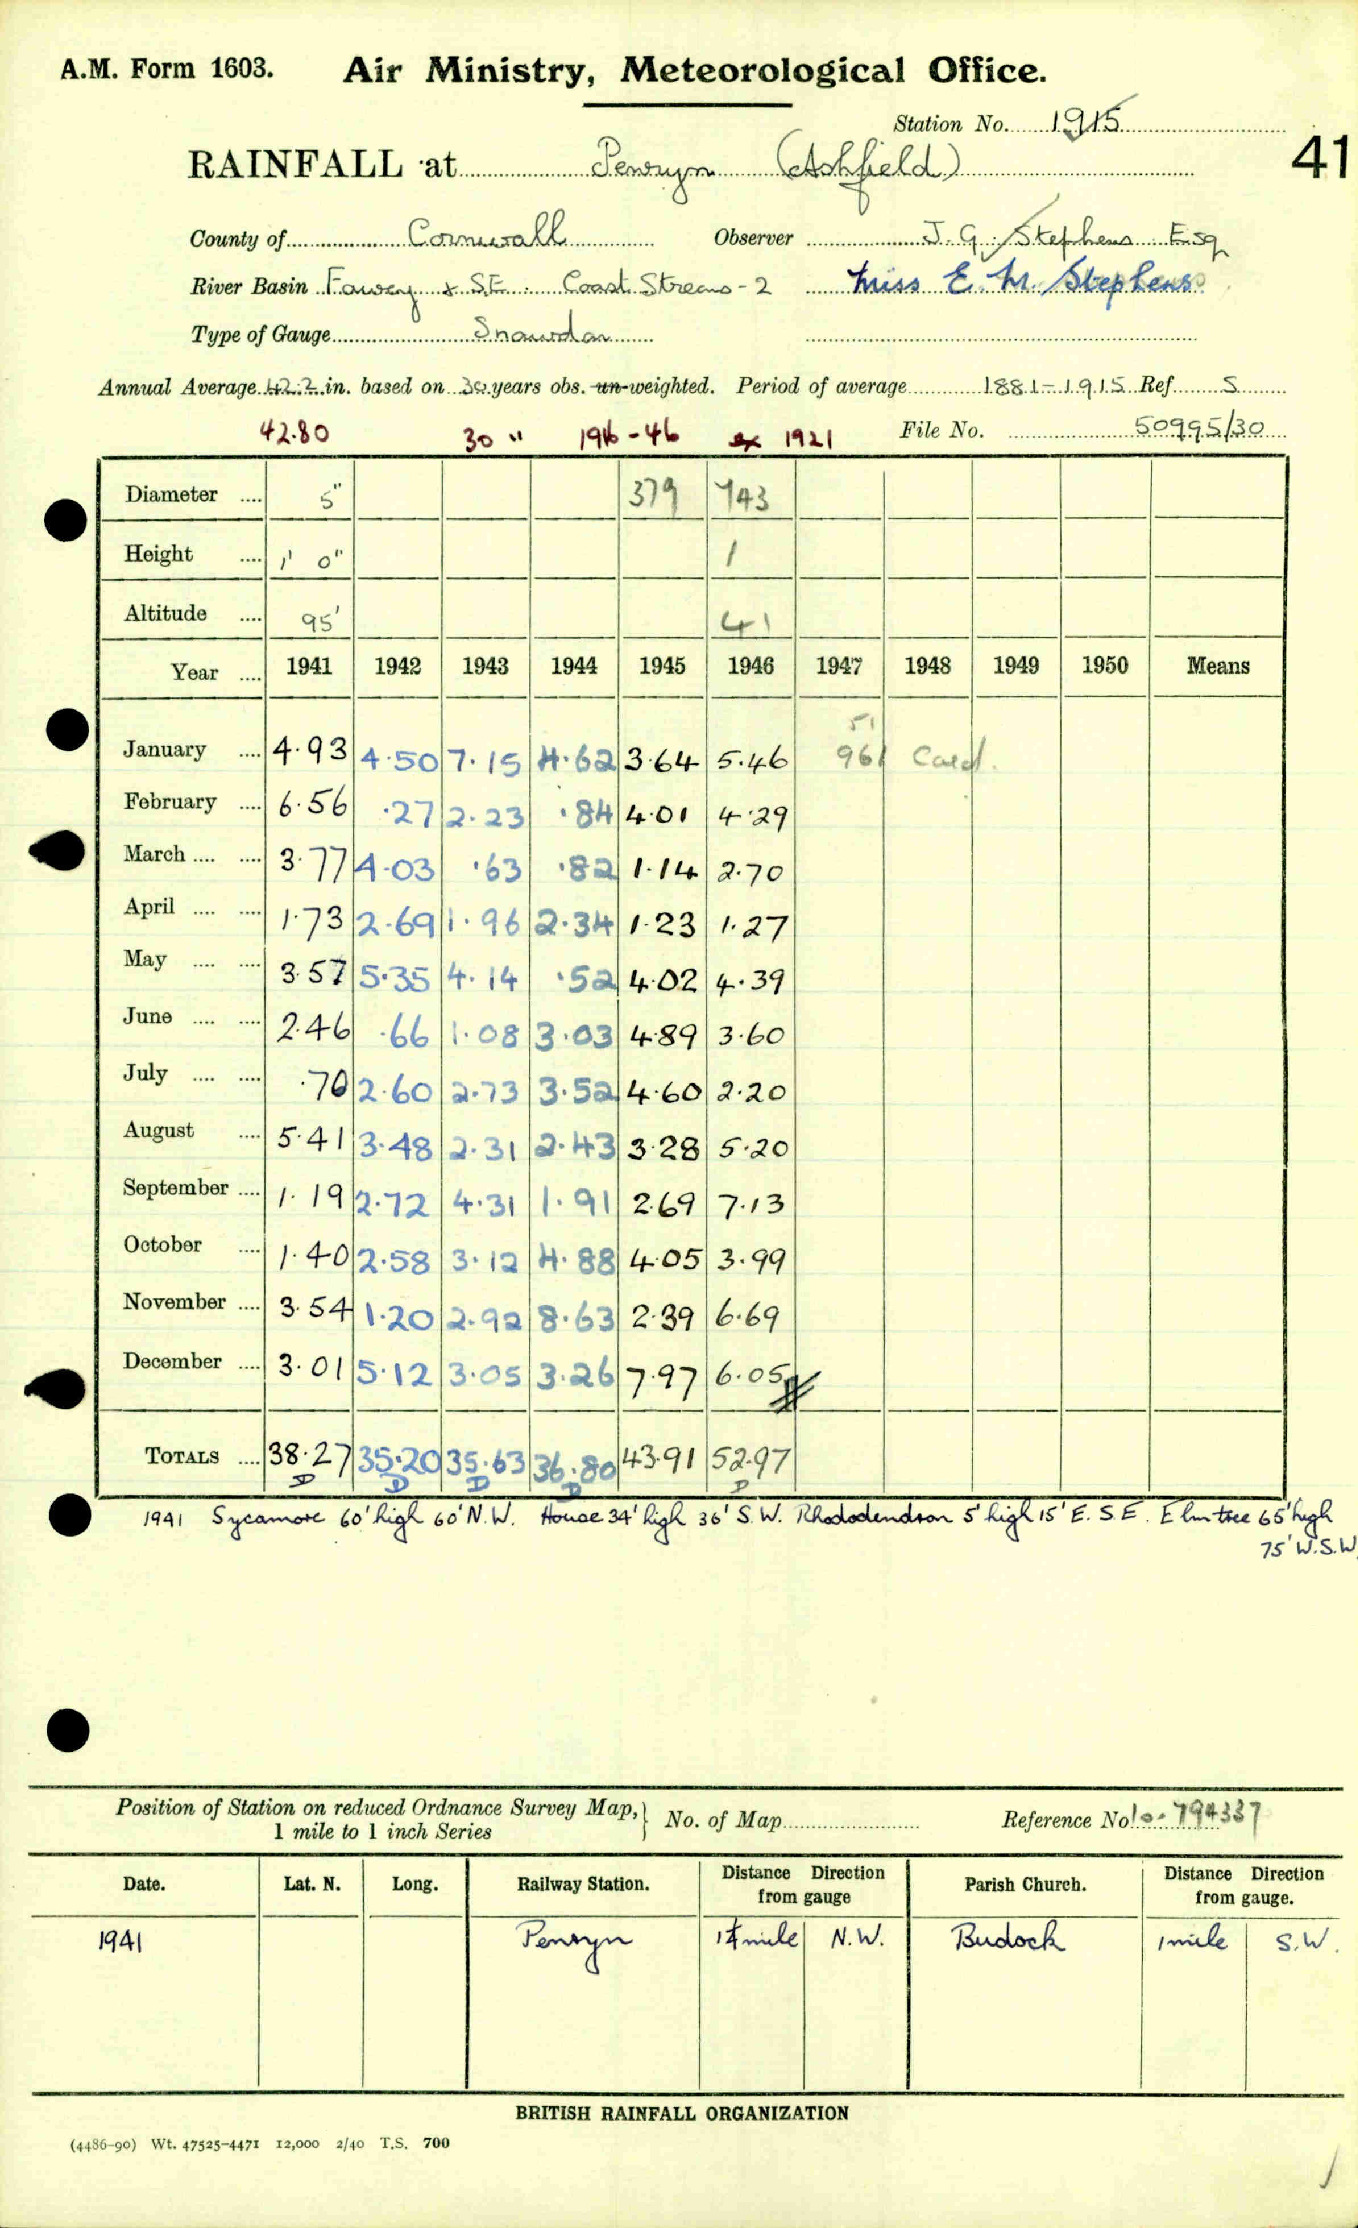 A.M. Form 1603. Air Ministry, Meteorological Office.
Station No. 1915
RAINFALL at Penryn (Ashfield) 41
County of Cornwall Observer J. G. Stephens Esq
River Basin Fowey & S.E. Coast Streams - 2 Miss E. M. Stephens
Type of Gauge Snowdon
Annual Average 42.2 in. based on 30 years obs. un-weighted. Period of average 1881-1915 Ref. S
42.80 30 " 1916-46 ex 1921 File No. 50995/30
Diameter .... 5" 379 743
Height .... 1' 0" 1
Altitude .... 95' 41
Year .... 1941 1942 1943 1944 1945 1946 1947 1948 1949 1950 Means
51
January .... 4.93 4.50 7.15 4.62 3.64 5.46 961 Card.
February .... 6.56 .27 2.23 .84 4.01 4.29
March .... .... 3.77 4.03 .63 .82 1.14 2.70
April .... .... 1.73 2.69 1.96 2.34 1.23 1.27
May .... .... 3.57 5.35 4.14 .52 4.02 4.39
June .... .... 2.46 .66 1.08 3.03 4.89 3.60
July .... .... .70 2.60 2.73 3.52 4.60 2.20
August .... 5.41 3.48 2.31 2.43 3.28 5.20
September .... 1.19 2.72 4.31 1.91 2.69 7.13
October .... 1.40 2.58 3.12 4.88 4.05 3.99
November .... 3.54 1.20 2.92 8.63 2.39 6.69
December .... 3.01 5.12 3.05 3.26 7.97 6.05
TOTALS .... 38.27 35.20 35.63 36.80 43.91 52.97
D D D D D
1941 Sycamore 60' high 60' N.W. House 34' high 36' S.W. Rhododendron 5' high 15' E.S.E. Elm tree 65' high
75' W.S.W.
Position of Station on reduced Ordnance Survey Map, } No. of Map Reference No 10-794337
1 mile to 1 inch Series
Date. Lat. N. Long. Railway Station. Distance Direction from gauge Parish Church. Distance Direction from gauge.
1941 Penryn 1¼ mile N.W. Budock 1 mile S.W.
BRITISH RAINFALL ORGANIZATION
(4486-90) Wt. 47525-4471 12,000 2/40 T.S. 700